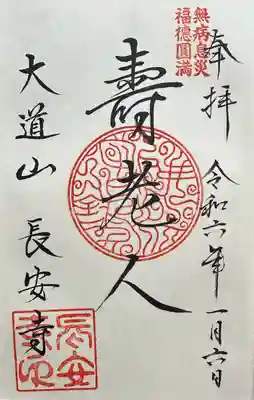 奉拝
令和六年一月六日
無病息災
福徳圓満
壽老人
大道山 長安寺